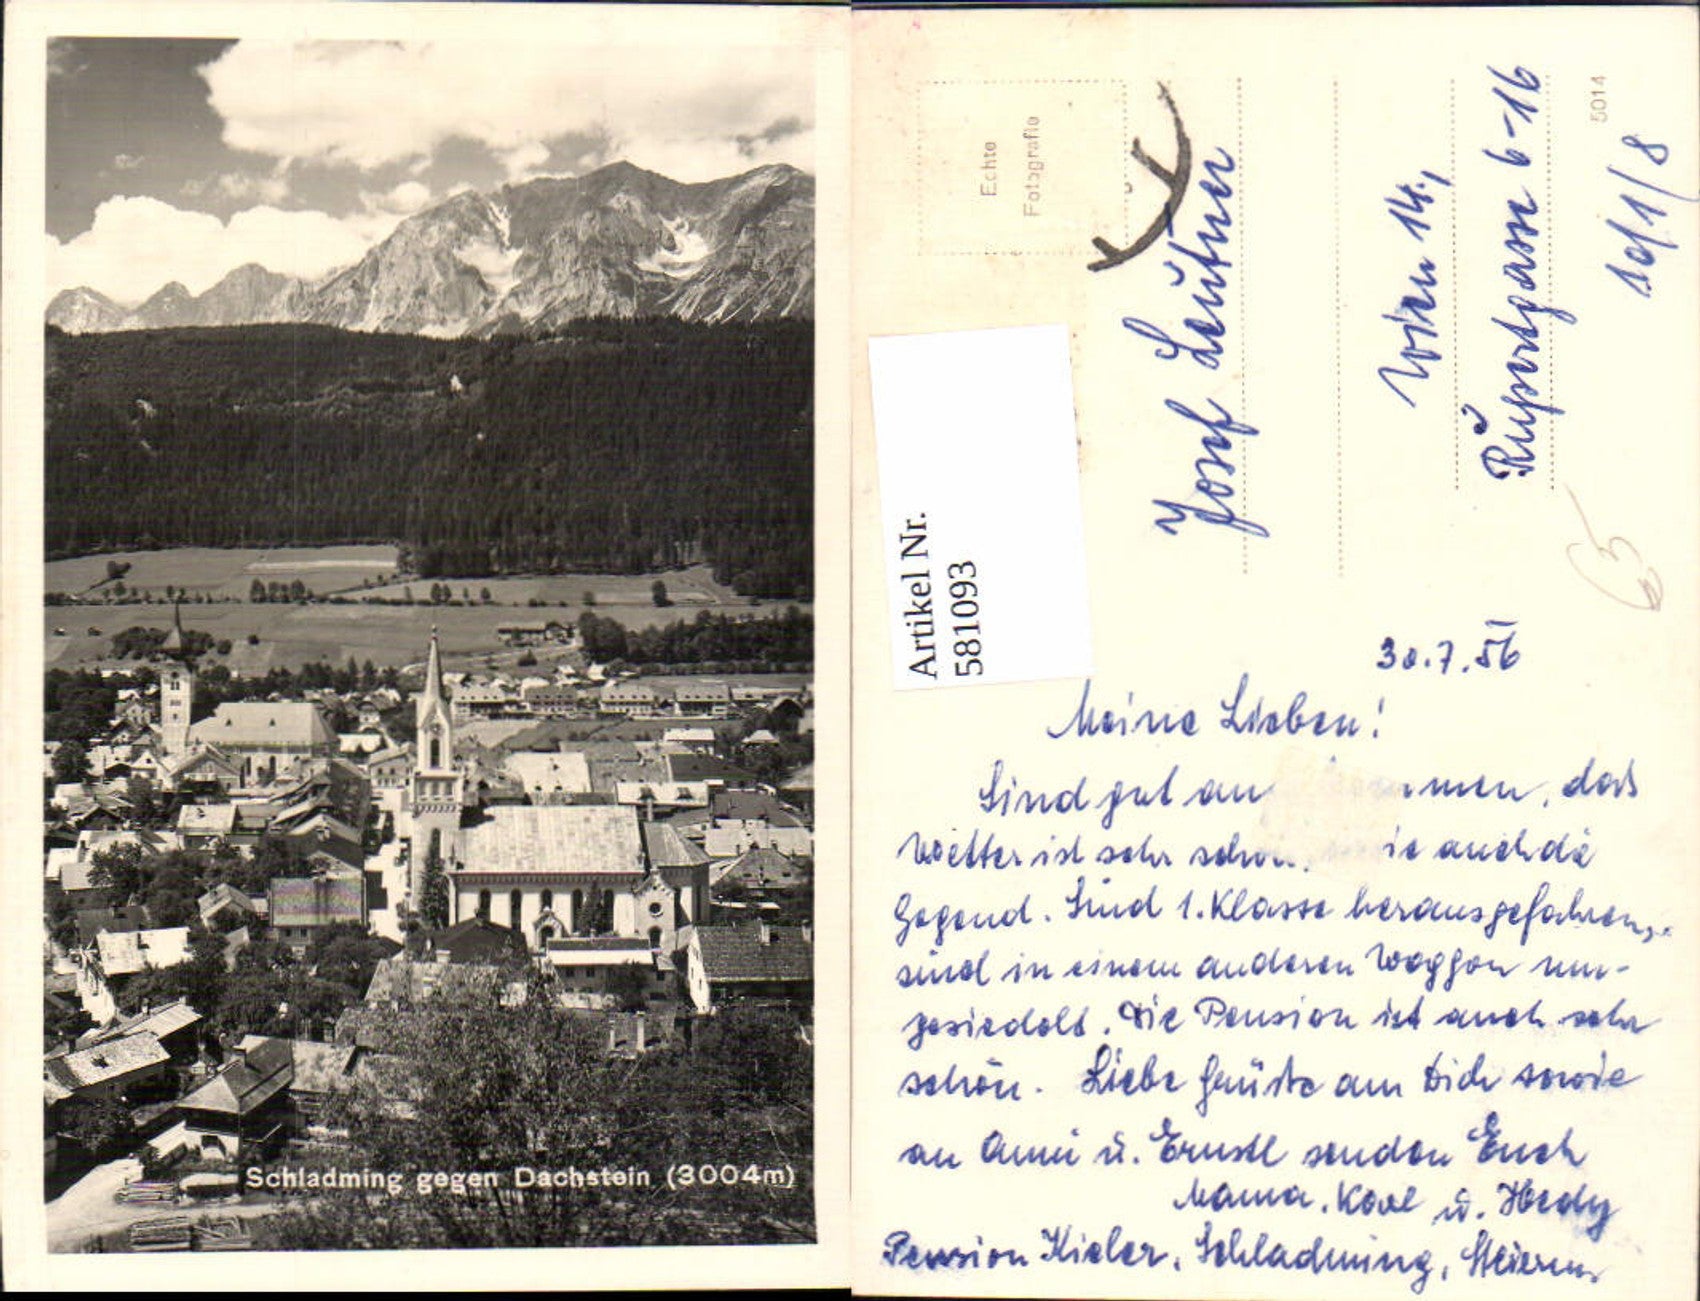 Schladming gegen Dachstein (3004m)
Echte
Fotografie
5014
Josef Leutner
Wien 14.,
Rupertgasse 6-16
10/1/8
Artikel Nr.
581093
30.7.56
Meine Lieben!
Sind gut an men, das
Wetter ist sehr schön, auch die
Gegend. Sind 1. Klasse herausgefahren,
sind in einem anderen Waggon um-
gesiedelt. Die Pension ist auch sehr
schön. Liebe Grüße an Dich sowie
an Anni u. Ernstl senden Euch
Mama, Karl u. Hedy
Pension Kieler, Schladming, Steierm.